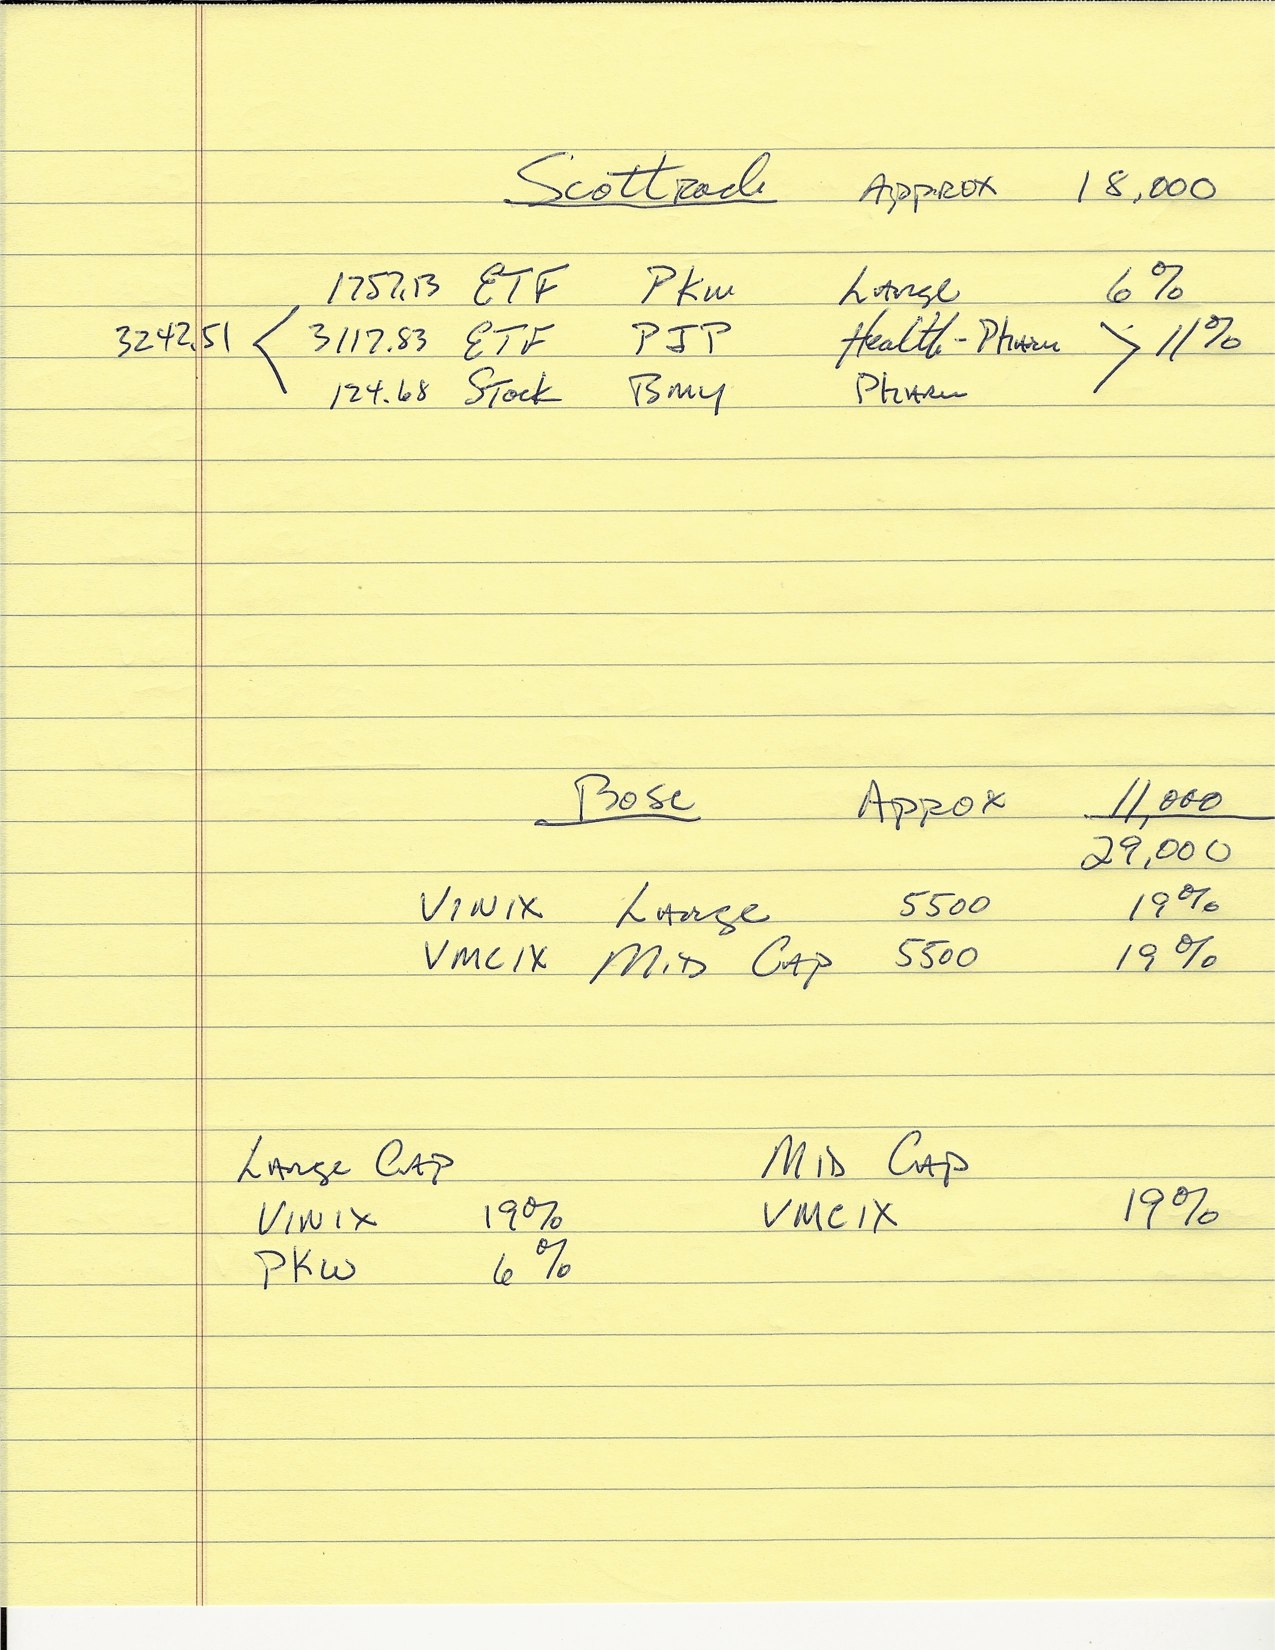 Scottrade Approx 18,000
1757.13 ETF PKW Large 6%
3242.51 < 3117.83 ETF PJP Health-Pharm > 11%
124.68 Stock BMY Pharm
Bose Approx 11,000
29,000
VINIX Large 5500 19%
VMCIX Mid Cap 5500 19%
Large Cap Mid Cap
VINIX 19% VMCIX 19%
PKW 6%